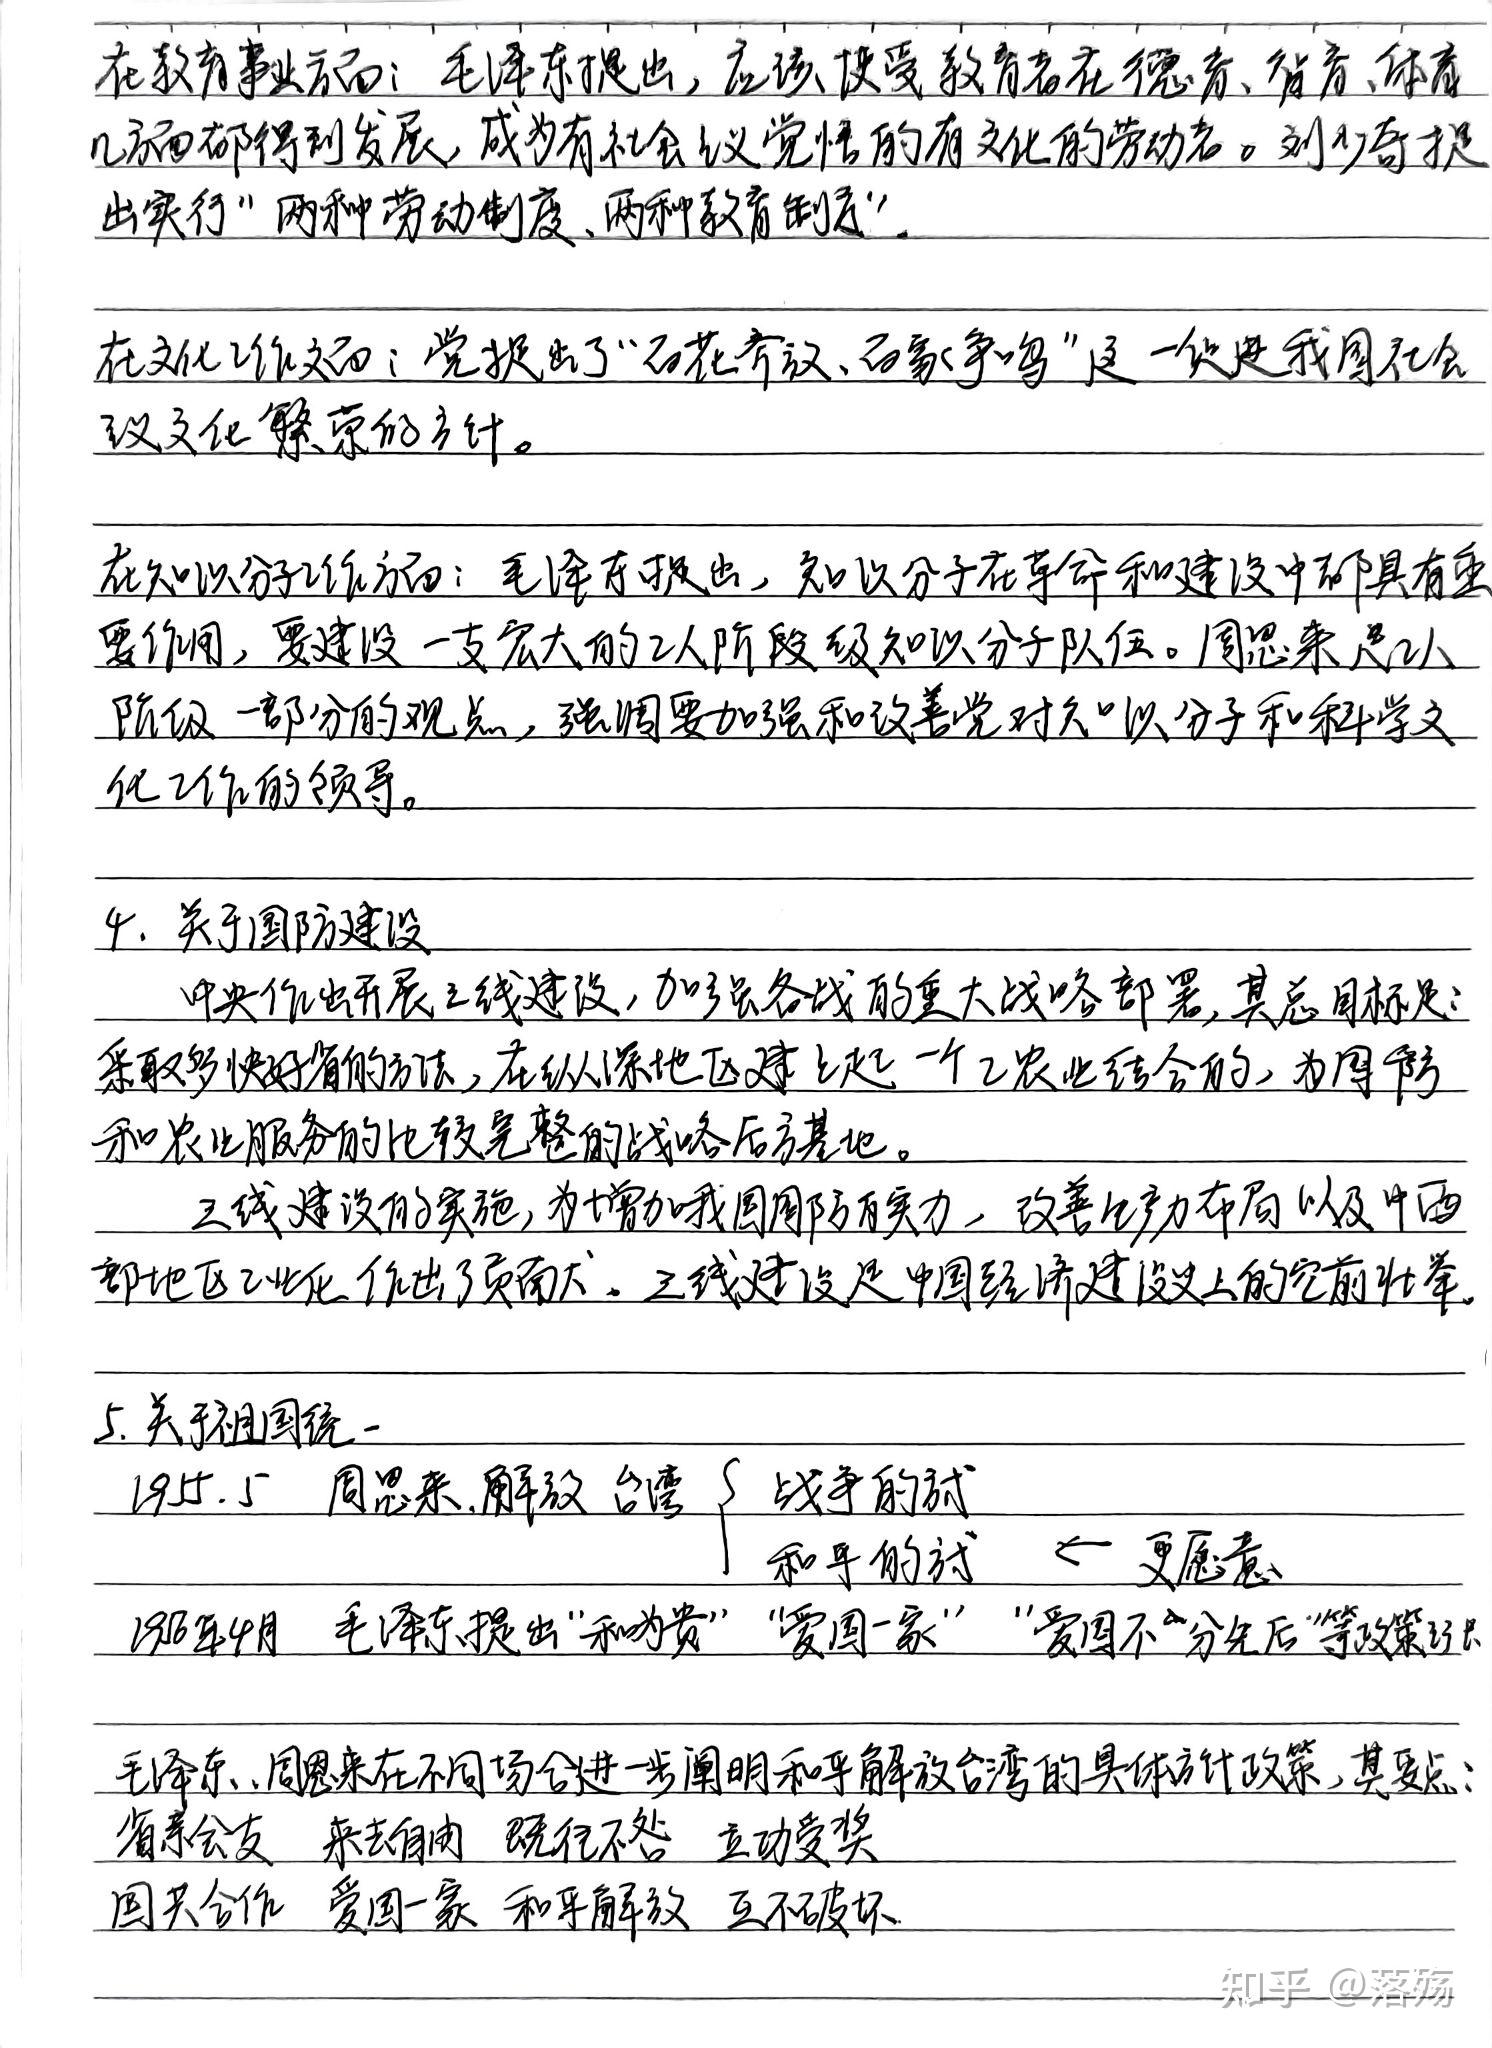 在教育事业方面：毛泽东提出，应该使受教育者在德育、智育、体育
几方面都得到发展，成为有社会主义觉悟的有文化的劳动者。刘少奇提
出实行“两种劳动制度、两种教育制度”.
在文化工作方面：党提出了“百花齐放、百家争鸣”这一促进我国社会
主义文化繁荣的方针。
在知识分子工作方面：毛泽东提出，知识分子在革命和建设中都具有重
要作用，要建设一支宏大的工人阶段级知识分子队伍。周恩来是工人
阶级一部分的观点，强调要加强和改善党对知识分子和科学文
化工作的领导。
4. 关于国防建设
中央作出开展三线建设，加强备战的重大战略部署，其总目标是：
采取多快好省的方法，在纵深地区建立起一个工农业结合的，为国防
和农业服务的比较完整的战略后方基地。
三线建设的实施，为增加我国国防实力，改善生产力布局以及中西
部地区工业化作出了贡献。三线建设是中国经济建设史上的空前壮举.
5. 关于祖国统一
1955.5 周恩来.解放台湾 { 战争的方式
和平的方式 ← 更愿意
1956年4月 毛泽东提出“和为贵” “爱国一家” “爱国不分先后”等政策
毛泽东、周恩来在不同场合进一步阐明和平解放台湾的具体方针政策，其要点：
省亲会友 来去自由 既往不咎 立功受奖
国共合作 爱国一家 和平解放 互不破坏
知乎 @落殇